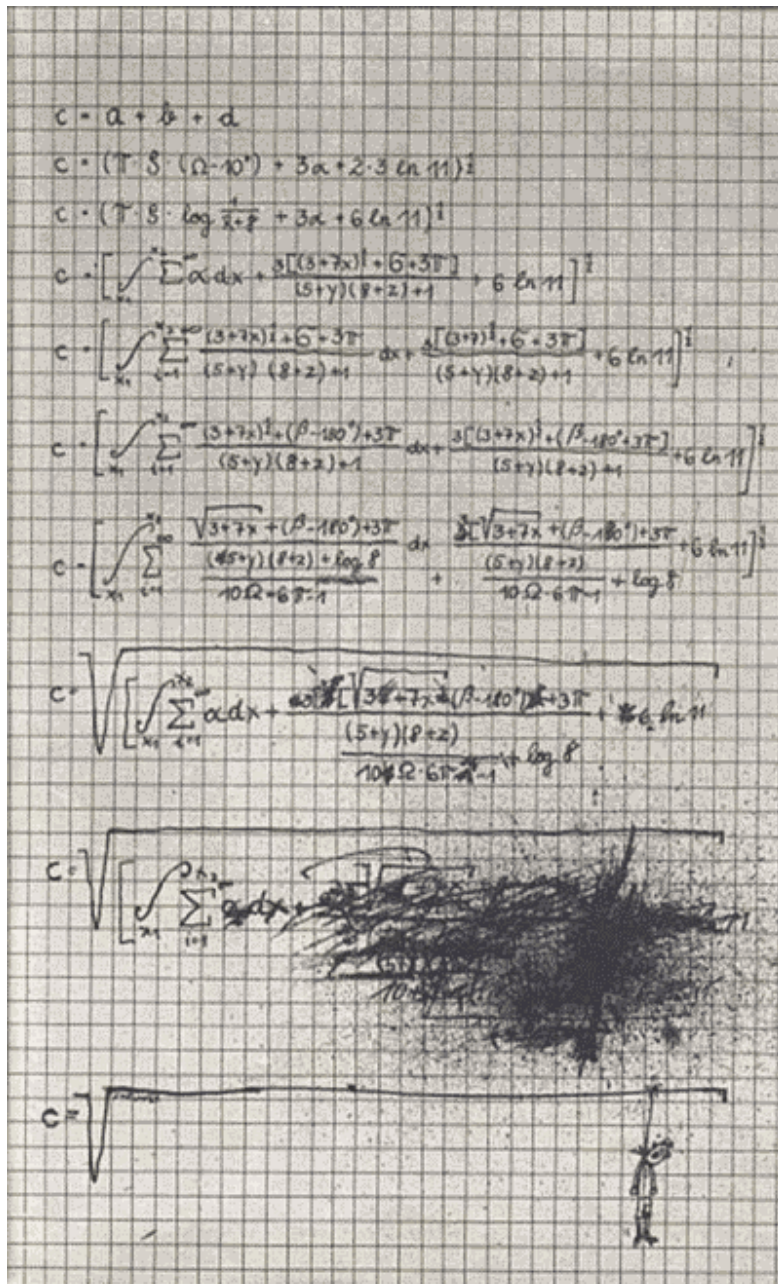 c = a + b + d
c = (π · 8 · (Ω-10°) + 3α + 2·3 ln 11)^½
c = (π · 8 · log 1/(x+8) + 3α + 6 ln 11)^½
c = [∫x₁ x₂ Σ ∞ α dx + 3[(3+7x)^½ + 6 + 3π] / (5+y)(8+z)+1 + 6 ln 11]^½
c = [∫x₁ x₂ Σ i=1 ∞ (3+7x)^½ + 6 + 3π / (5+y)(8+z)+1 dx + 3[(3+7)^½ + 6 + 3π] / (5+y)(8+z)+1 + 6 ln 11]^½
c = [∫x₁ x₂ Σ i=1 ∞ (3+7x)^½ + (β-180°) + 3π / (5+y)(8+z)+1 dx + 3[(3+7x)^½ + (β-180°+3π] / (5+y)(8+z)+1 + 6 ln 11]^½
c = [∫x₁ x₂ Σ i=1 ∞ √3+7x + (β-180°) + 3π / (5+y)(8+z) + log 8 / 10Ω+6π-1 dx + 3[√3+7x + (β-180°) + 3π / (5+y)(8+z) / 10Ω·6π-1 + log 8 + 6 ln 11]^½
c = √[∫x₁ x₂ Σ i=1 ∞ α dx + 3[√3+7x + (β-180°) + 3π / (5+y)(8+z) / 10Ω·6π-1 + log 8 + 6 ln 11
c = √[∫x₁ x₂ Σ i=1 ∞ α dx +
c = √